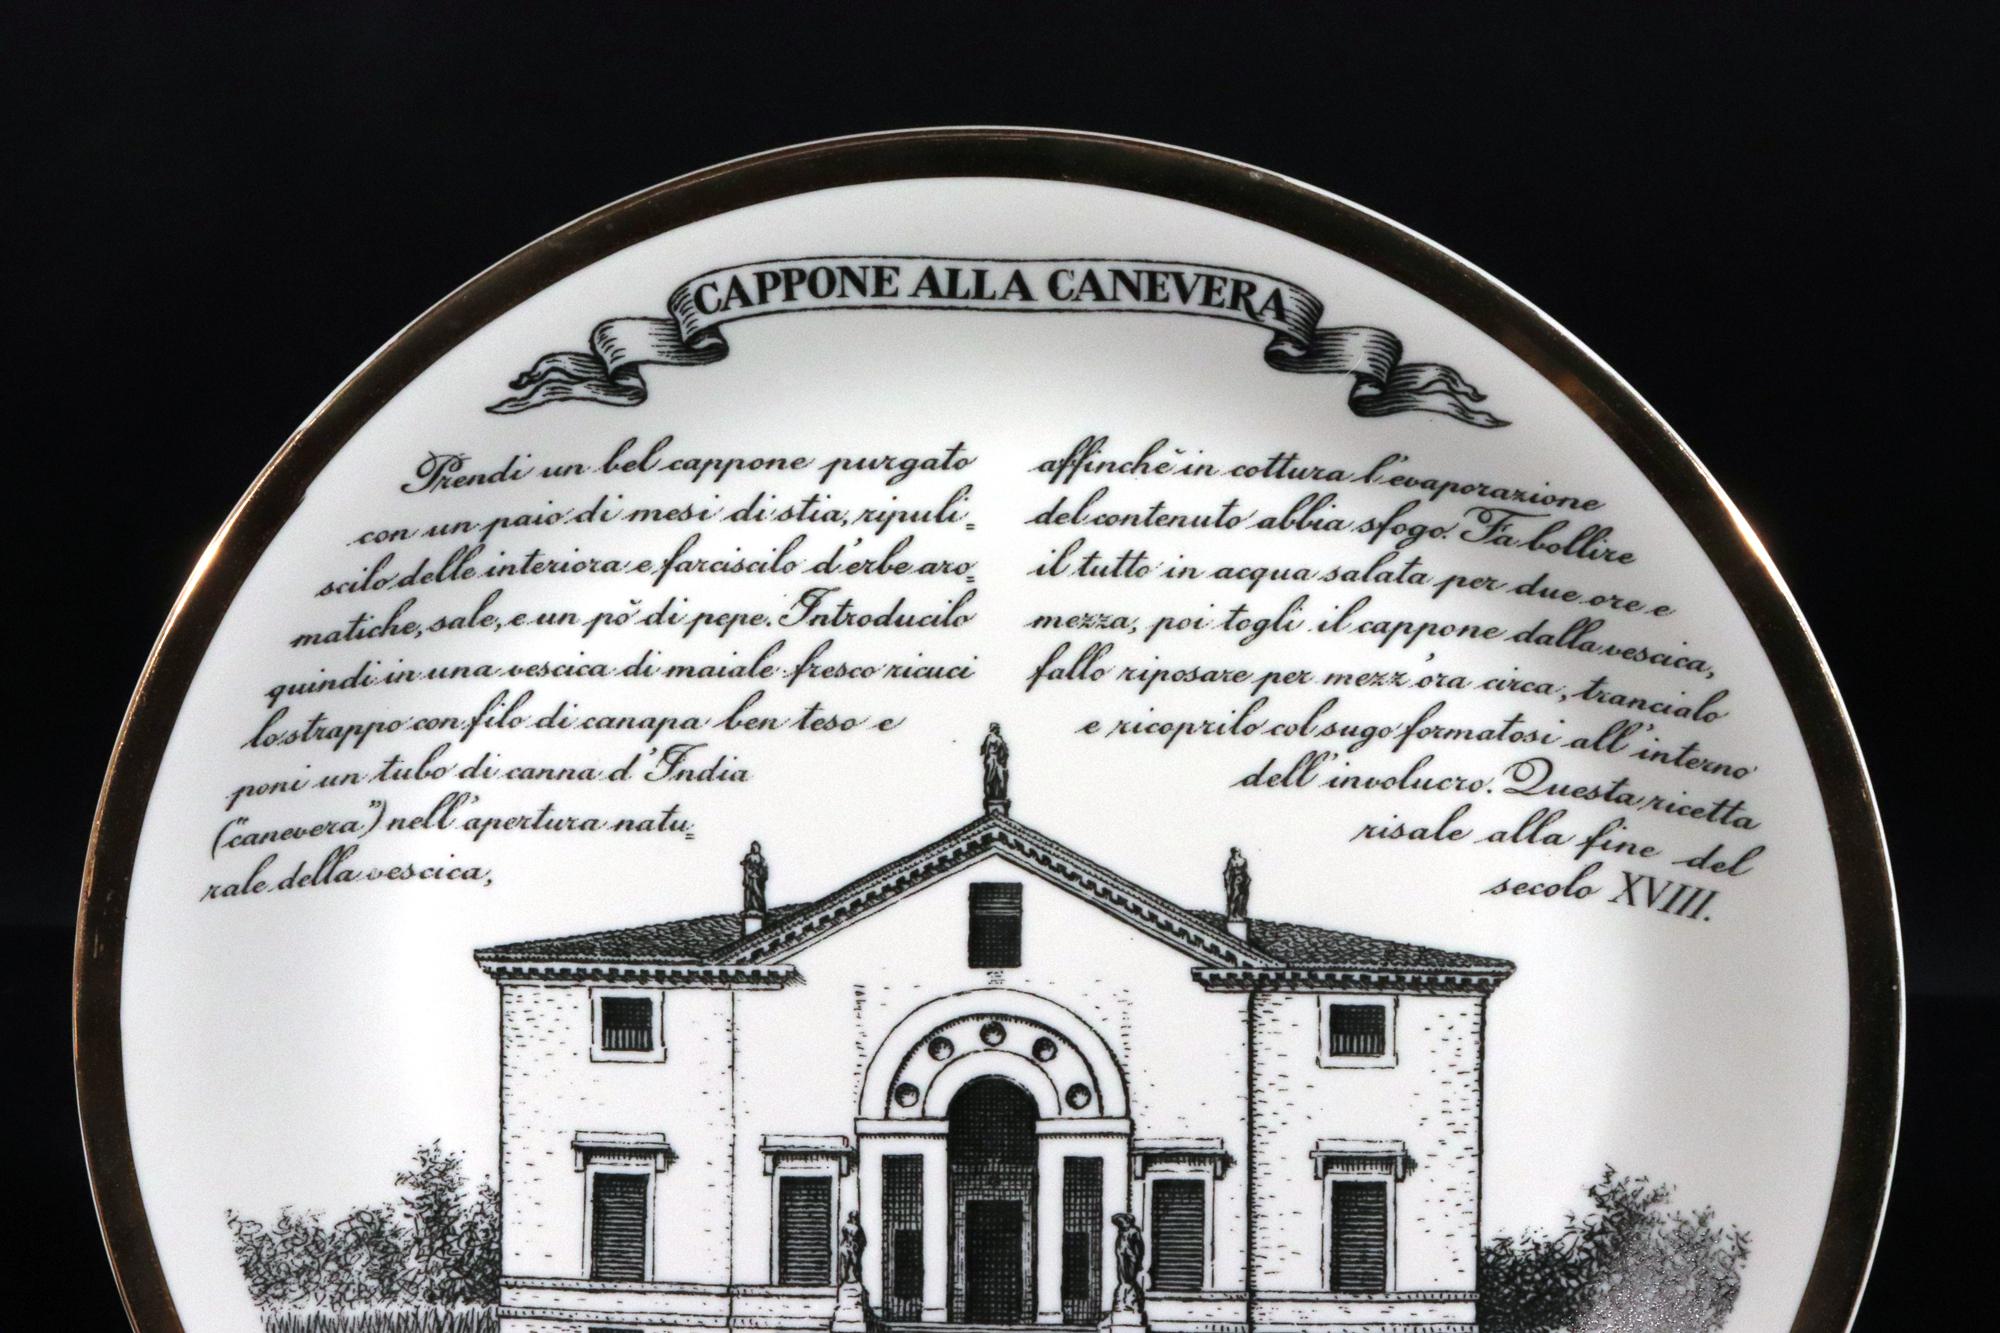 CAPPONE ALLA CANEVERA
Prendi un bel cappone purgato
con un paio di mesi di stia, ripuli=
scilo delle interiora e farciscilo d'erbe aro=
matiche, sale, e un pò di pepe. Introducilo
quindi in una vescica di maiale fresco ricuci
lo strappo con filo di canapa ben teso e
poni un tubo di canna d'India
("canevera") nell'apertura natu=
rale della vescica,
affinchè in cottura l'evaporazione
del contenuto abbia sfogo. Fa bollire
il tutto in acqua salata per due ore e
mezza, poi togli il cappone dalla vescica,
fallo riposare per mezz'ora circa, trancialo
e ricoprilo col sugo formatosi all'interno
dell'involucro. Questa ricetta
risale alla fine del
secolo XVIII.